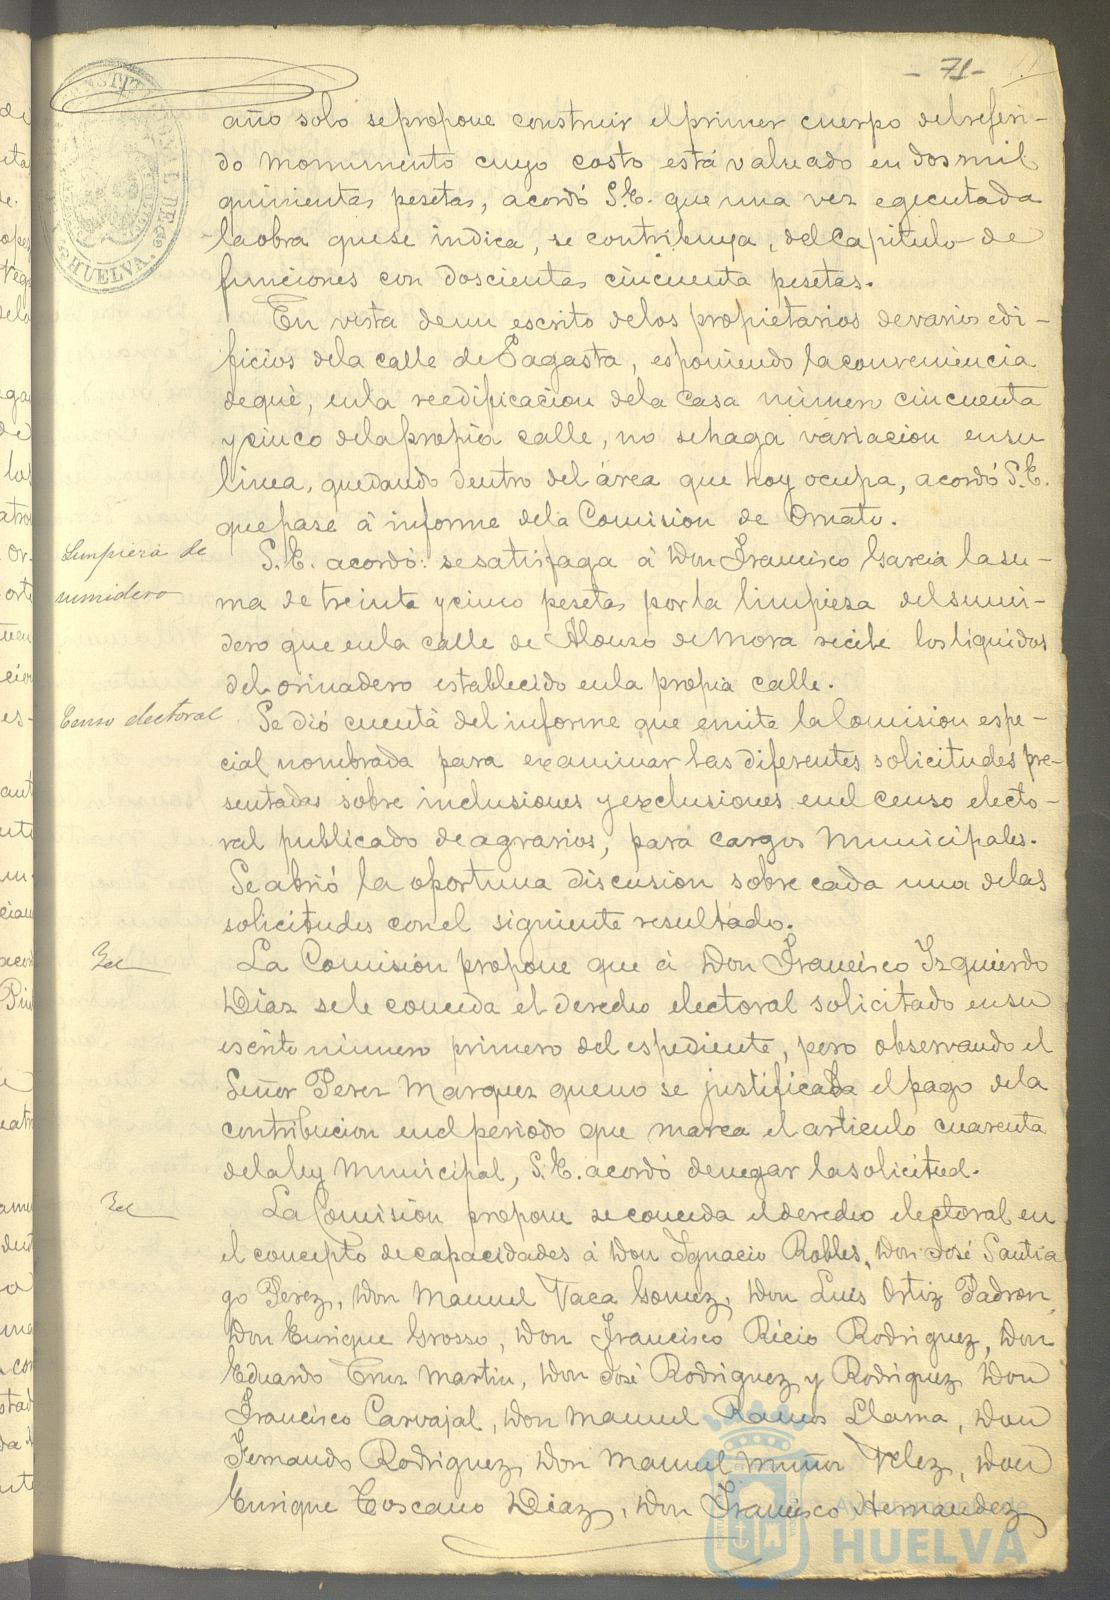 - 71 -
año solo se propone construir el primer cuerpo del referi-
do monumento cuyo costo está valuado en dos mil
quinientas pesetas, acordó S.E. que una vez egecutada
la obra que se indica, se contribuya, del Capitulo de
funciones con doscientas cincuenta pesetas.
En vista de un escrito de los propietarios de varios edi-
ficios de la calle de Sagasta, esponiendo la conveniencia
de que, en la reedificacion de la Casa número cincuenta
y cinco de la propia calle, no se haga variacion en su
linea, quedando dentro del área que hoy ocupa, acordó S.E.
que pase á informe de la Comision de Ornato.
Limpieza de
sumidero
S.E. acordó: se satisfaga á Don Francisco Garcia la su-
ma de treinta y cinco pesetas por la limpieza del sumi-
dero que en la calle de Alonso de Mora recibe los liquidos
del orinadero establecido en la propia calle.
Censo electoral
Se dió cuenta del informe que emite la Comision espe-
cial nombrada para examinar las diferentes solicitudes pre-
sentadas sobre inclusiones y exclusiones en el censo electo-
ral publicado de agrarios, para cargos Municipales.
Se abrió la oportuna discusion sobre cada una de las
solicitudes con el siguiente resultado.
La Comision propone que á Don Francisco Izquierdo
Diaz se le conceda el derecho electoral solicitado en su
escrito número primero del espediente, pero observando el
Señor Perez Marquez que no se justificaba el pago de la
contribucion en el periodo que marca el articulo cuarenta
de la ley Municipal, S.E. acordó denegar la solicitud.
La Comision propone se conceda el derecho electoral en
el concepto de capacidades á Don Ignacio Robles, Don José Santia
go Perez, Don Manuel Vaca Gomez, Don Luis Ortiz Padron,
Don Enrique Grosso, Don Francisco Ricio Rodriguez, Don
Eduardo Cruz Martin, Don José Rodriguez y Rodriguez Don
Francisco Carvajal, Don Manuel Ramos Llama, Don
Fernando Rodriguez, Don Manuel Muñoz Velez, Don
Enrique Toscano Diaz, Don Francisco Hernandez
CONSTITUCIONAL DE
HUELVA.
Ayuntamiento de
HUELVA